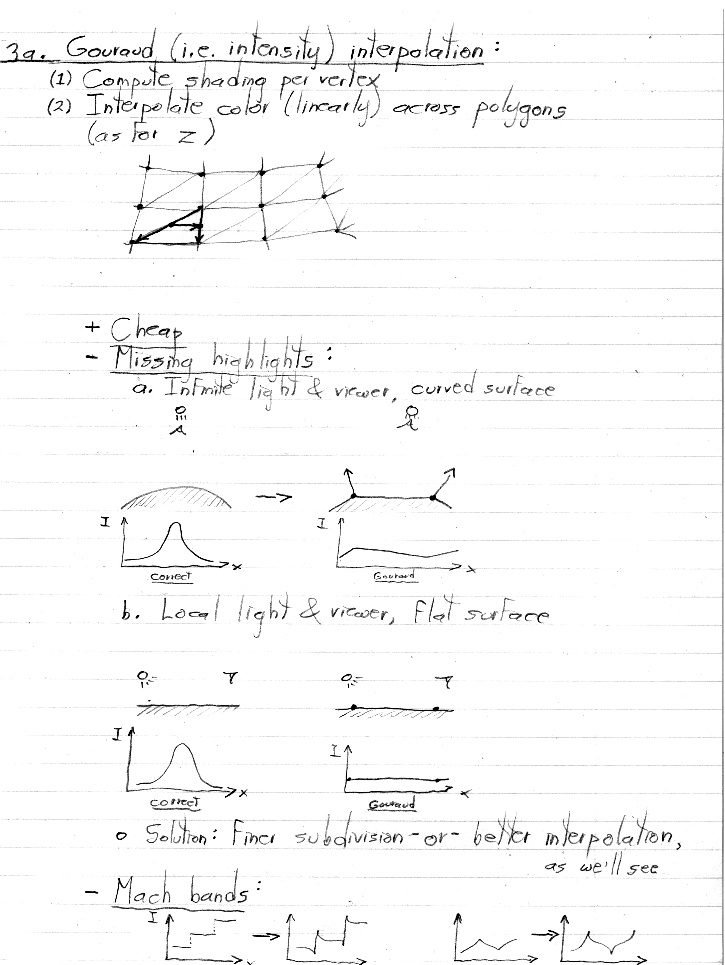 3a. Gouraud (i.e. intensity) interpolation:
(1) Compute shading per vertex
(2) Interpolate color (linearly) across polygons
(as for z)
+ Cheap
- Missing highlights:
a. Infinite light & viewer, curved surface
I x correct
I x Gouraud
b. Local light & viewer, flat surface
I x correct
I x Gouraud
o Solution: Finer subdivision -or- better interpolation,
as we'll see
- Mach bands:
I x